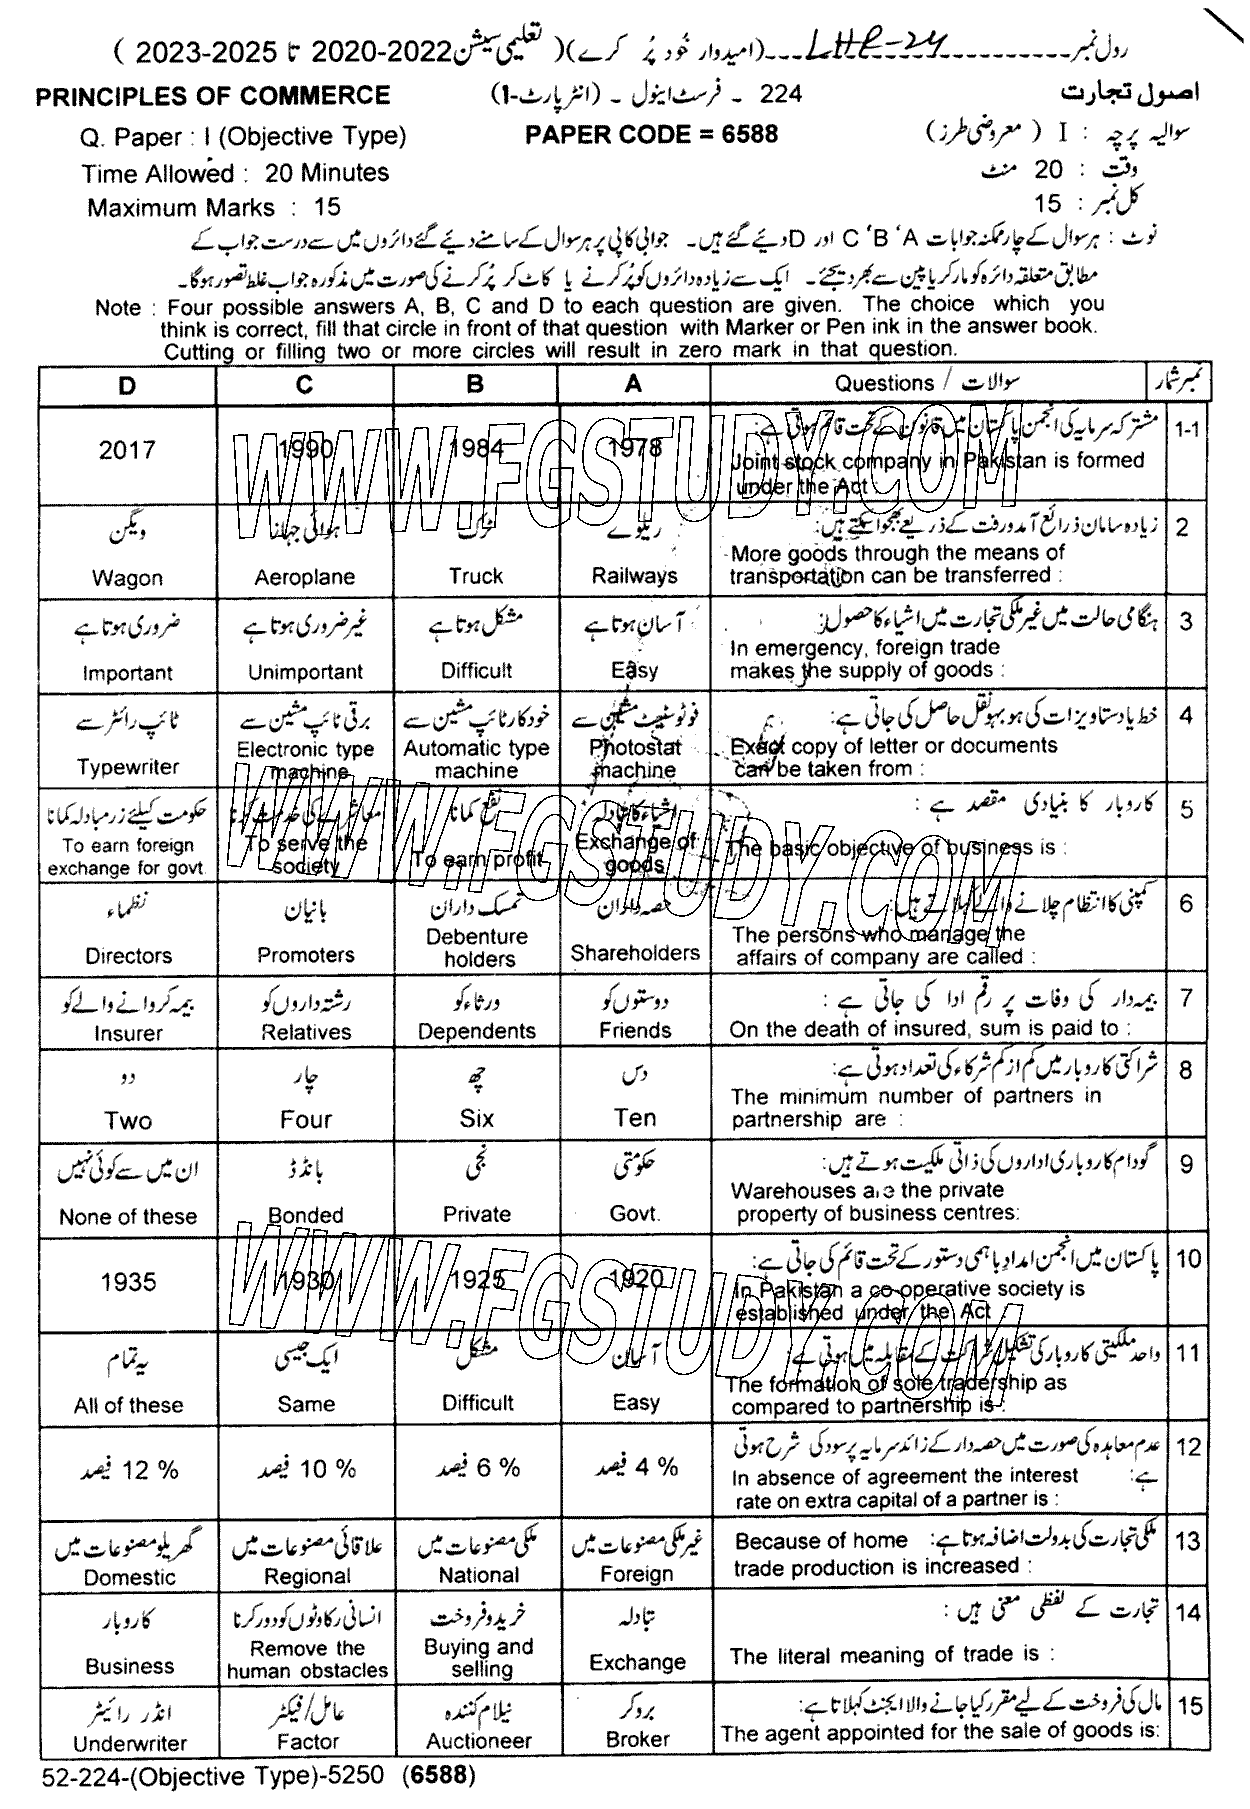 رول نمبر LHR-24 (امیدوار خود پُر کرے) ( تعلیمی سیشن 2020-2022 تا 2023-2025 )
PRINCIPLES OF COMMERCE 224 ۔ فرسٹ اینول ۔ (انٹر پارٹ-I) اصول تجارت
Q. Paper : I (Objective Type) PAPER CODE = 6588 سوالیہ پرچہ : I ( معروضی طرز)
Time Allowed : 20 Minutes وقت : 20 منٹ
Maximum Marks : 15 کل نمبر : 15
نوٹ : ہر سوال کے چار ممکنہ جوابات A ' B ' C اور D دیئے گئے ہیں۔ جوابی کاپی پر ہر سوال کے سامنے دیئے گئے دائروں میں سے درست جواب کے
مطابق متعلقہ دائرہ کو مارکر یا پین سے بھر دیجئے۔ ایک سے زیادہ دائروں کو پُر کرنے یا کاٹ کر پُر کرنے کی صورت میں مذکورہ جواب غلط تصور ہوگا۔
Note : Four possible answers A, B, C and D to each question are given. The choice which you
think is correct, fill that circle in front of that question with Marker or Pen ink in the answer book.
Cutting or filling two or more circles will result in zero mark in that question.
D C B A Questions / سوالات نمبر شمار
مشترکہ سرمایہ کی انجمن پاکستان میں قانون کے تحت قائم ہوتی ہے: 1-1
2017 1990 1984 1978 Joint stock company in Pakistan is formed
under the Act
ویگن ہوائی جہاز ٹرک ریلوے زیادہ سامان ذرائع آمدورفت کے ذریعے بھجوا سکتے ہیں: 2
Wagon Aeroplane Truck Railways More goods through the means of
transportation can be transferred :
ضروری ہوتا ہے غیر ضروری ہوتا ہے مشکل ہوتا ہے آسان ہوتا ہے ہنگامی حالت میں غیر ملکی تجارت میں اشیاء کا حصول: 3
Important Unimportant Difficult Easy In emergency, foreign trade
makes the supply of goods :
ٹائپ رائٹر سے برقی ٹائپ مشین سے خودکار ٹائپ مشین سے فوٹوسٹیٹ مشین سے خط یا دستاویزات کی ہوبہو نقل حاصل کی جاتی ہے: 4
Typewriter Electronic type machine Automatic type machine Photostat machine Exact copy of letter or documents
can be taken from :
حکومت کیلئے زرمبادلہ کمانا معاشرے کی خدمت کرنا نفع کمانا اشیاء کا تبادلہ کاروبار کا بنیادی مقصد ہے : 5
To earn foreign exchange for govt. To serve the society To earn profit Exchange of goods The basic objective of business is :
نظماء بانیان تمسک داران حصہ داران کمپنی کا انتظام چلانے والے کہلاتے ہیں: 6
Directors Promoters Debenture holders Shareholders The persons who manage the
affairs of company are called :
بیمہ کروانے والے کو رشتہ داروں کو ورثاء کو دوستوں کو بیمہ دار کی وفات پر رقم ادا کی جاتی ہے : 7
Insurer Relatives Dependents Friends On the death of insured, sum is paid to :
دو چار چھ دس شراکتی کاروبار میں کم از کم شرکاء کی تعداد ہوتی ہے: 8
Two Four Six Ten The minimum number of partners in
partnership are :
ان میں سے کوئی نہیں بانڈڈ نجی حکومتی گودام کاروباری اداروں کی ذاتی ملکیت ہوتے ہیں: 9
None of these Bonded Private Govt. Warehouses are the private
property of business centres:
پاکستان میں انجمن امداد باہمی دستور کے تحت قائم کی جاتی ہے: 10
1935 1930 1925 1920 In Pakistan a co-operative society is
established under the Act
یہ تمام ایک جیسی مشکل آسان واحد ملکیتی کاروبار کی تشکیل شراکت کے مقابلہ میں ہوتی ہے: 11
All of these Same Difficult Easy The formation of sole tradership as
compared to partnership is :
عدم معاہدہ کی صورت میں حصہ دار کے زائد سرمایہ پر سود کی شرح ہوتی ہے: 12
12 % فیصد 10 % فیصد 6 % فیصد 4 % فیصد In absence of agreement the interest
rate on extra capital of a partner is :
گھریلو مصنوعات میں علاقائی مصنوعات میں ملکی مصنوعات میں غیر ملکی مصنوعات میں ملکی تجارت کی بدولت اضافہ ہوتا ہے: Because of home 13
Domestic Regional National Foreign trade production is increased :
کاروبار انسانی رکاوٹوں کو دور کرنا خرید و فروخت تبادلہ تجارت کے لفظی معنی ہیں : 14
Business Remove the human obstacles Buying and selling Exchange The literal meaning of trade is :
انڈر رائیٹر عامل/فیکٹر نیلام کنندہ بروکر مال کی فروخت کے لیے مقرر کیا جانے والا ایجنٹ کہلاتا ہے: 15
Underwriter Factor Auctioneer Broker The agent appointed for the sale of goods is:
52-224-(Objective Type)-5250 (6588)
WWW.FGSTUDY.COM
WWW.FGSTUDY.COM
WWW.FGSTUDY.COM